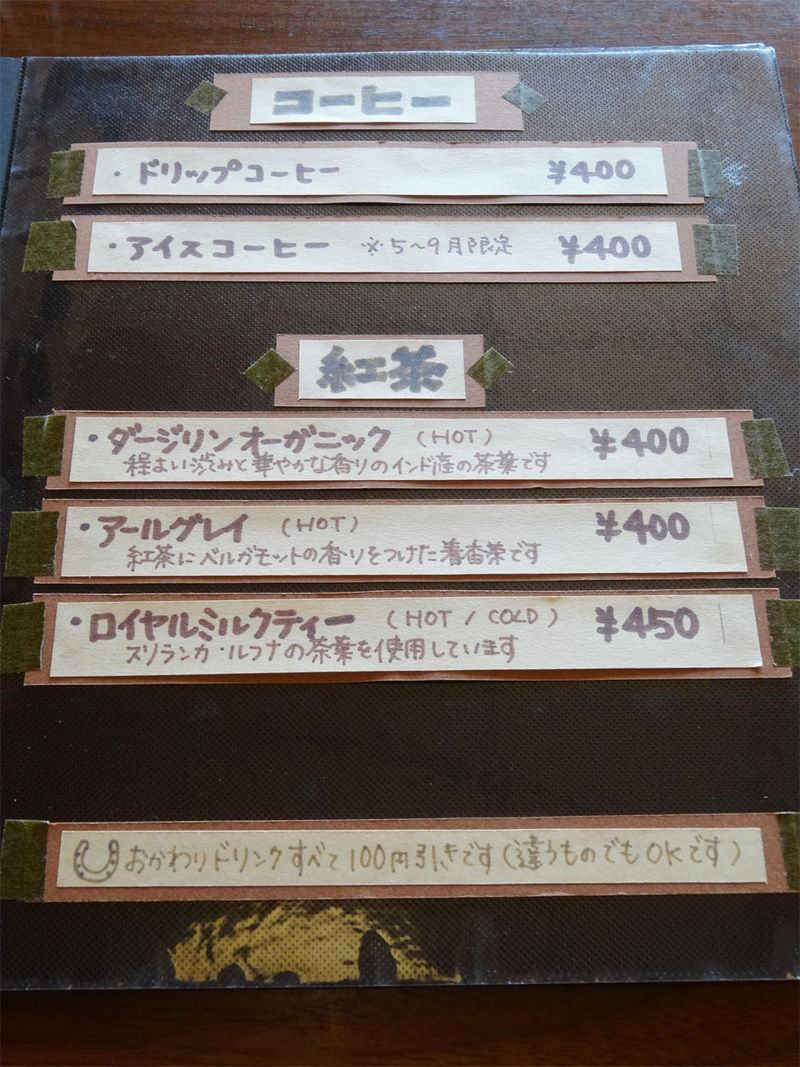 コーヒー
・ドリップコーヒー ¥400
・アイスコーヒー ※5~9月限定 ¥400
紅茶
・ダージリンオーガニック (HOT) ¥400
程よい渋みと華やかな香りのインド産の茶葉です
・アールグレイ (HOT) ¥400
紅茶にベルガモットの香りをつけた着香茶です
・ロイヤルミルクティー (HOT / COLD) ¥450
スリランカ・ルフナの茶葉を使用しています
おかわりドリンクすべて100円引きです(違うものでもOKです)